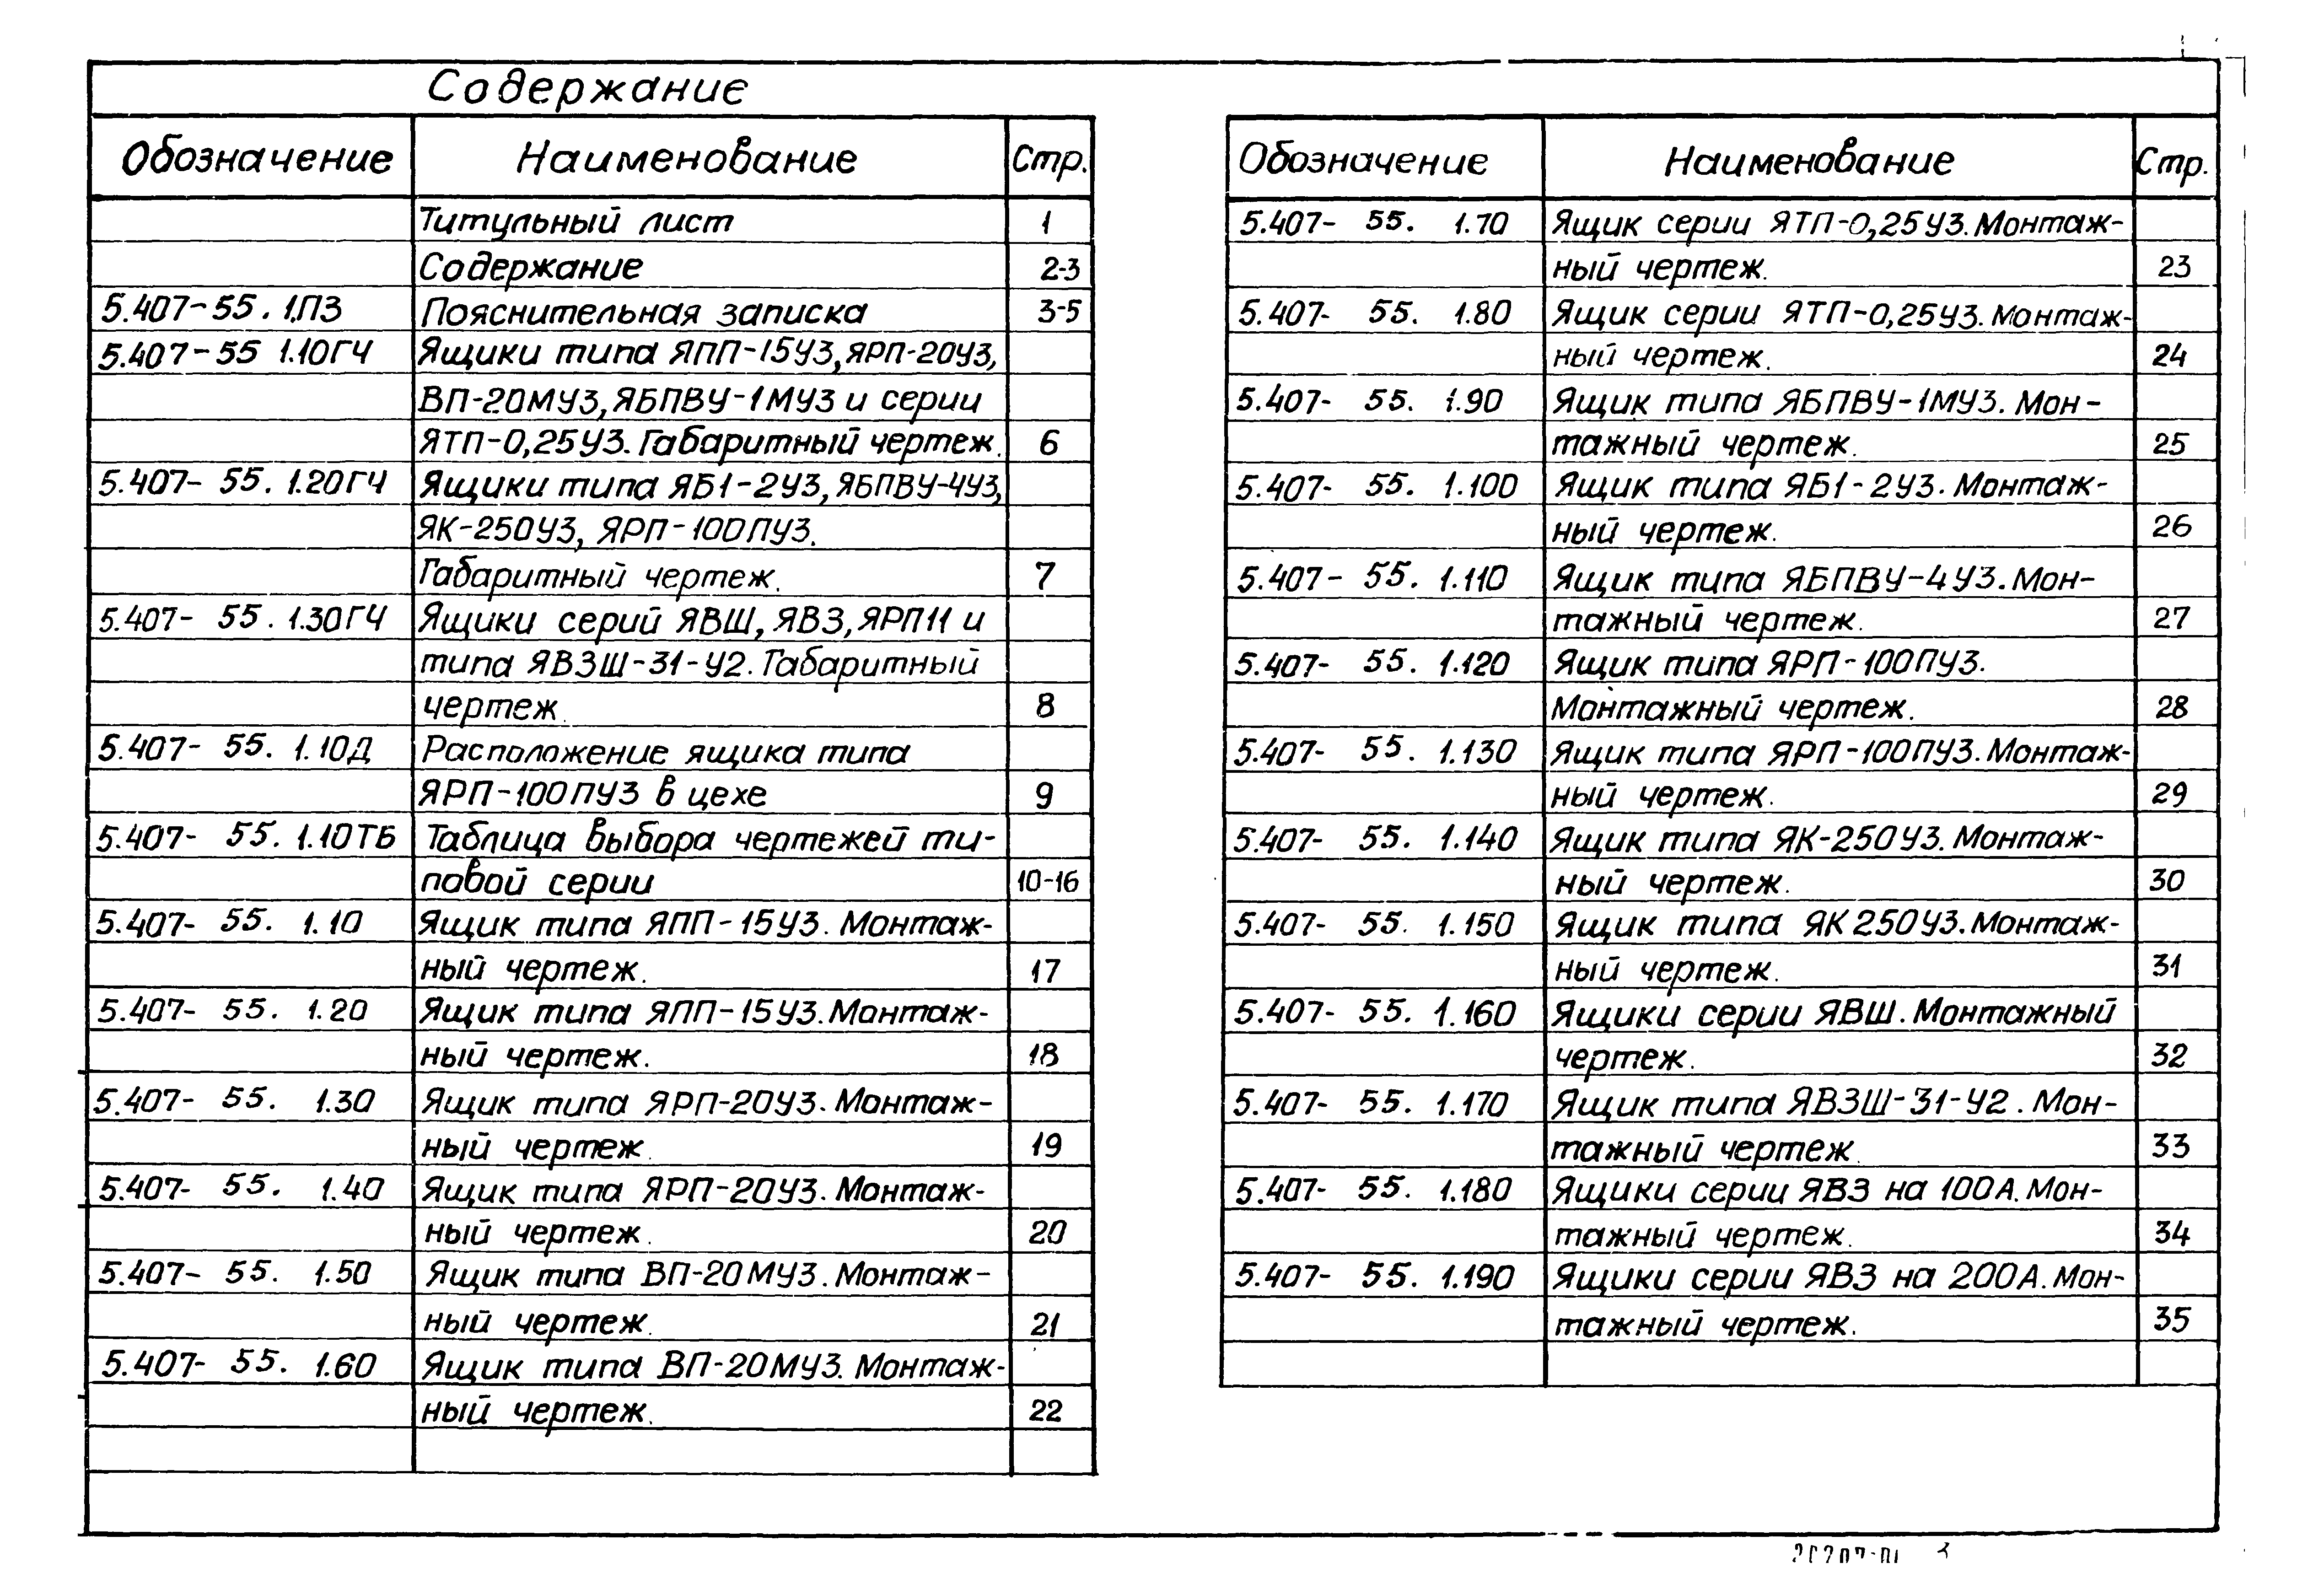 Содержание
Обозначение Наименование Стр.
Титульный лист 1
Содержание 2-3
5.407-55. 1.ПЗ Пояснительная записка 3-5
5.407-55 1.10ГЧ Ящики типа ЯПП-15У3, ЯРП-20У3,
ВП-20МУ3, ЯБПВУ-1МУ3 и серии
ЯТП-0,25У3. Габаритный чертеж. 6
5.407- 55. 1.20ГЧ Ящики типа ЯБ1-2У3, ЯБПВУ-4У3,
ЯК-250У3, ЯРП-100ПУ3.
Габаритный чертеж. 7
5.407- 55. 1.30ГЧ Ящики серий ЯВШ, ЯВЗ, ЯРП11 и
типа ЯВЗШ-31-У2. Габаритный
чертеж. 8
5.407- 55. 1.10Д Расположение ящика типа
ЯРП-100ПУ3 в цехе 9
5.407- 55. 1.10ТБ Таблица выбора чертежей ти-
повой серии 10-16
5.407- 55. 1.10 Ящик типа ЯПП-15У3. Монтаж-
ный чертеж. 17
5.407- 55. 1.20 Ящик типа ЯПП-15У3. Монтаж-
ный чертеж. 18
5.407- 55. 1.30 Ящик типа ЯРП-20У3. Монтаж-
ный чертеж. 19
5.407- 55. 1.40 Ящик типа ЯРП-20У3. Монтаж-
ный чертеж. 20
5.407- 55. 1.50 Ящик типа ВП-20МУ3. Монтаж-
ный чертеж. 21
5.407- 55. 1.60 Ящик типа ВП-20МУ3. Монтаж-
ный чертеж. 22
Обозначение Наименование Стр.
5.407- 55. 1.70 Ящик серии ЯТП-0,25У3. Монтаж-
ный чертеж. 23
5.407- 55. 1.80 Ящик серии ЯТП-0,25У3. Монтаж-
ный чертеж. 24
5.407- 55. 1.90 Ящик типа ЯБПВУ-1МУ3. Мон-
тажный чертеж. 25
5.407- 55. 1.100 Ящик типа ЯБ1-2У3. Монтаж-
ный чертеж. 26
5.407- 55. 1.110 Ящик типа ЯБПВУ-4У3. Мон-
тажный чертеж. 27
5.407- 55. 1.120 Ящик типа ЯРП-100ПУ3.
Монтажный чертеж. 28
5.407- 55. 1.130 Ящик типа ЯРП-100ПУ3. Монтаж-
ный чертеж. 29
5.407- 55. 1.140 Ящик типа ЯК-250У3. Монтаж-
ный чертеж. 30
5.407- 55. 1.150 Ящик типа ЯК 250У3. Монтаж-
ный чертеж. 31
5.407- 55. 1.160 Ящики серии ЯВШ. Монтажный
чертеж. 32
5.407- 55. 1.170 Ящик типа ЯВЗШ-31-У2. Мон-
тажный чертеж. 33
5.407- 55. 1.180 Ящики серии ЯВЗ на 100А. Мон-
тажный чертеж. 34
5.407- 55. 1.190 Ящики серии ЯВЗ на 200А. Мон-
тажный чертеж. 35